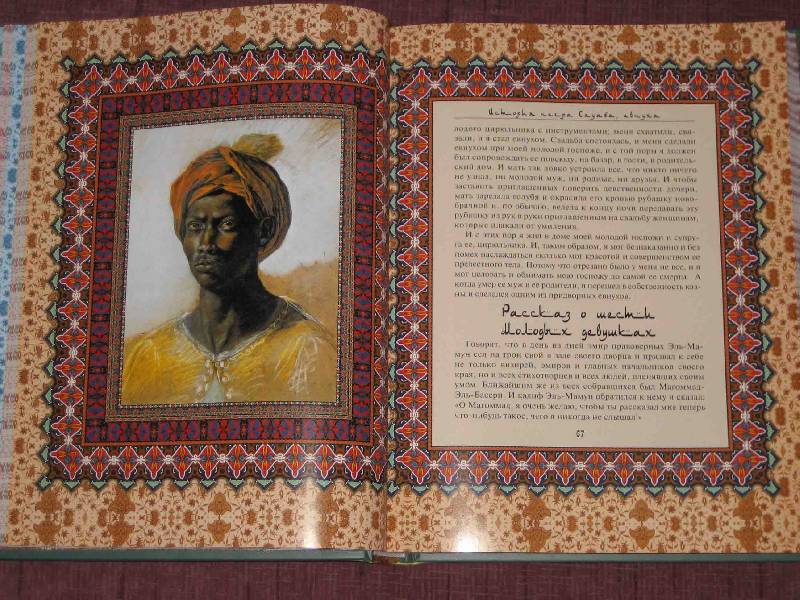 История негра Саудба, евнуха
лодого цирюльника с инструментами; меня схватили, свя-
зали, и я стал евнухом. Свадьба состоялась, и меня сделали
евнухом при моей молодой госпоже, и с той поры я должен
был сопровождать ее повсюду, на базар, в гости, в родитель-
ский дом. И мать так ловко устроила все, что никто ничего
не узнал, ни молодой муж, ни родные, ни друзья. И чтобы
заставить приглашенных поверить девственности дочери,
мать зарезала голубя и окрасила его кровью рубашку ново-
брачной и, по обычаю, велела к концу ночи передавать эту
рубашку из рук в руки приглашенным на свадьбу женщинам,
которые плакали от умиления.
И с этих пор я жил в доме моей молодой госпожи и супру-
га ее, цирюльника. И, таким образом, я мог безнаказанно и без
помех наслаждаться сколько мог красотой и совершенством ее
прелестного тела. Потому что отрезано было у меня не все, и я
мог целовать и обнимать мою госпожу до самой ее смерти. А
когда умер ее муж и ее родители, я перешел в собственность каз-
ны и сделался одним из придворных евнухов.
Рассказ о шести
молодых девушках
Говорят, что в день из дней эмир правоверных Эль-Ма-
мун сел на трон свой в зале своего дворца и призвал к себе
не только визирей, эмиров и главных начальников своего
края, но и всех стихотворцев и всех людей, пленявших своим
умом. Ближайшим же из всех собравшихся был Магоммед-
Эль-Бассри. И калиф Эль-Мамун обратился к нему и сказал:
«О Магоммед, я очень желаю, чтобы ты рассказал мне теперь
что-нибудь такое, чего я никогда не слышал!»
67